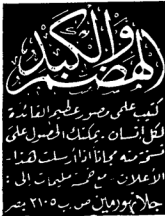 الهضم والكبد
كتيب علمي مصور عظيم الفائدة
لكل إنسان. يمكنك الحصول على
نسخة منه مجانا اذا ارسلت هذا
الأعلان. مع خمسة مليمات الى:
جلانهورمين ص. ب ٢١٠٥ مصر